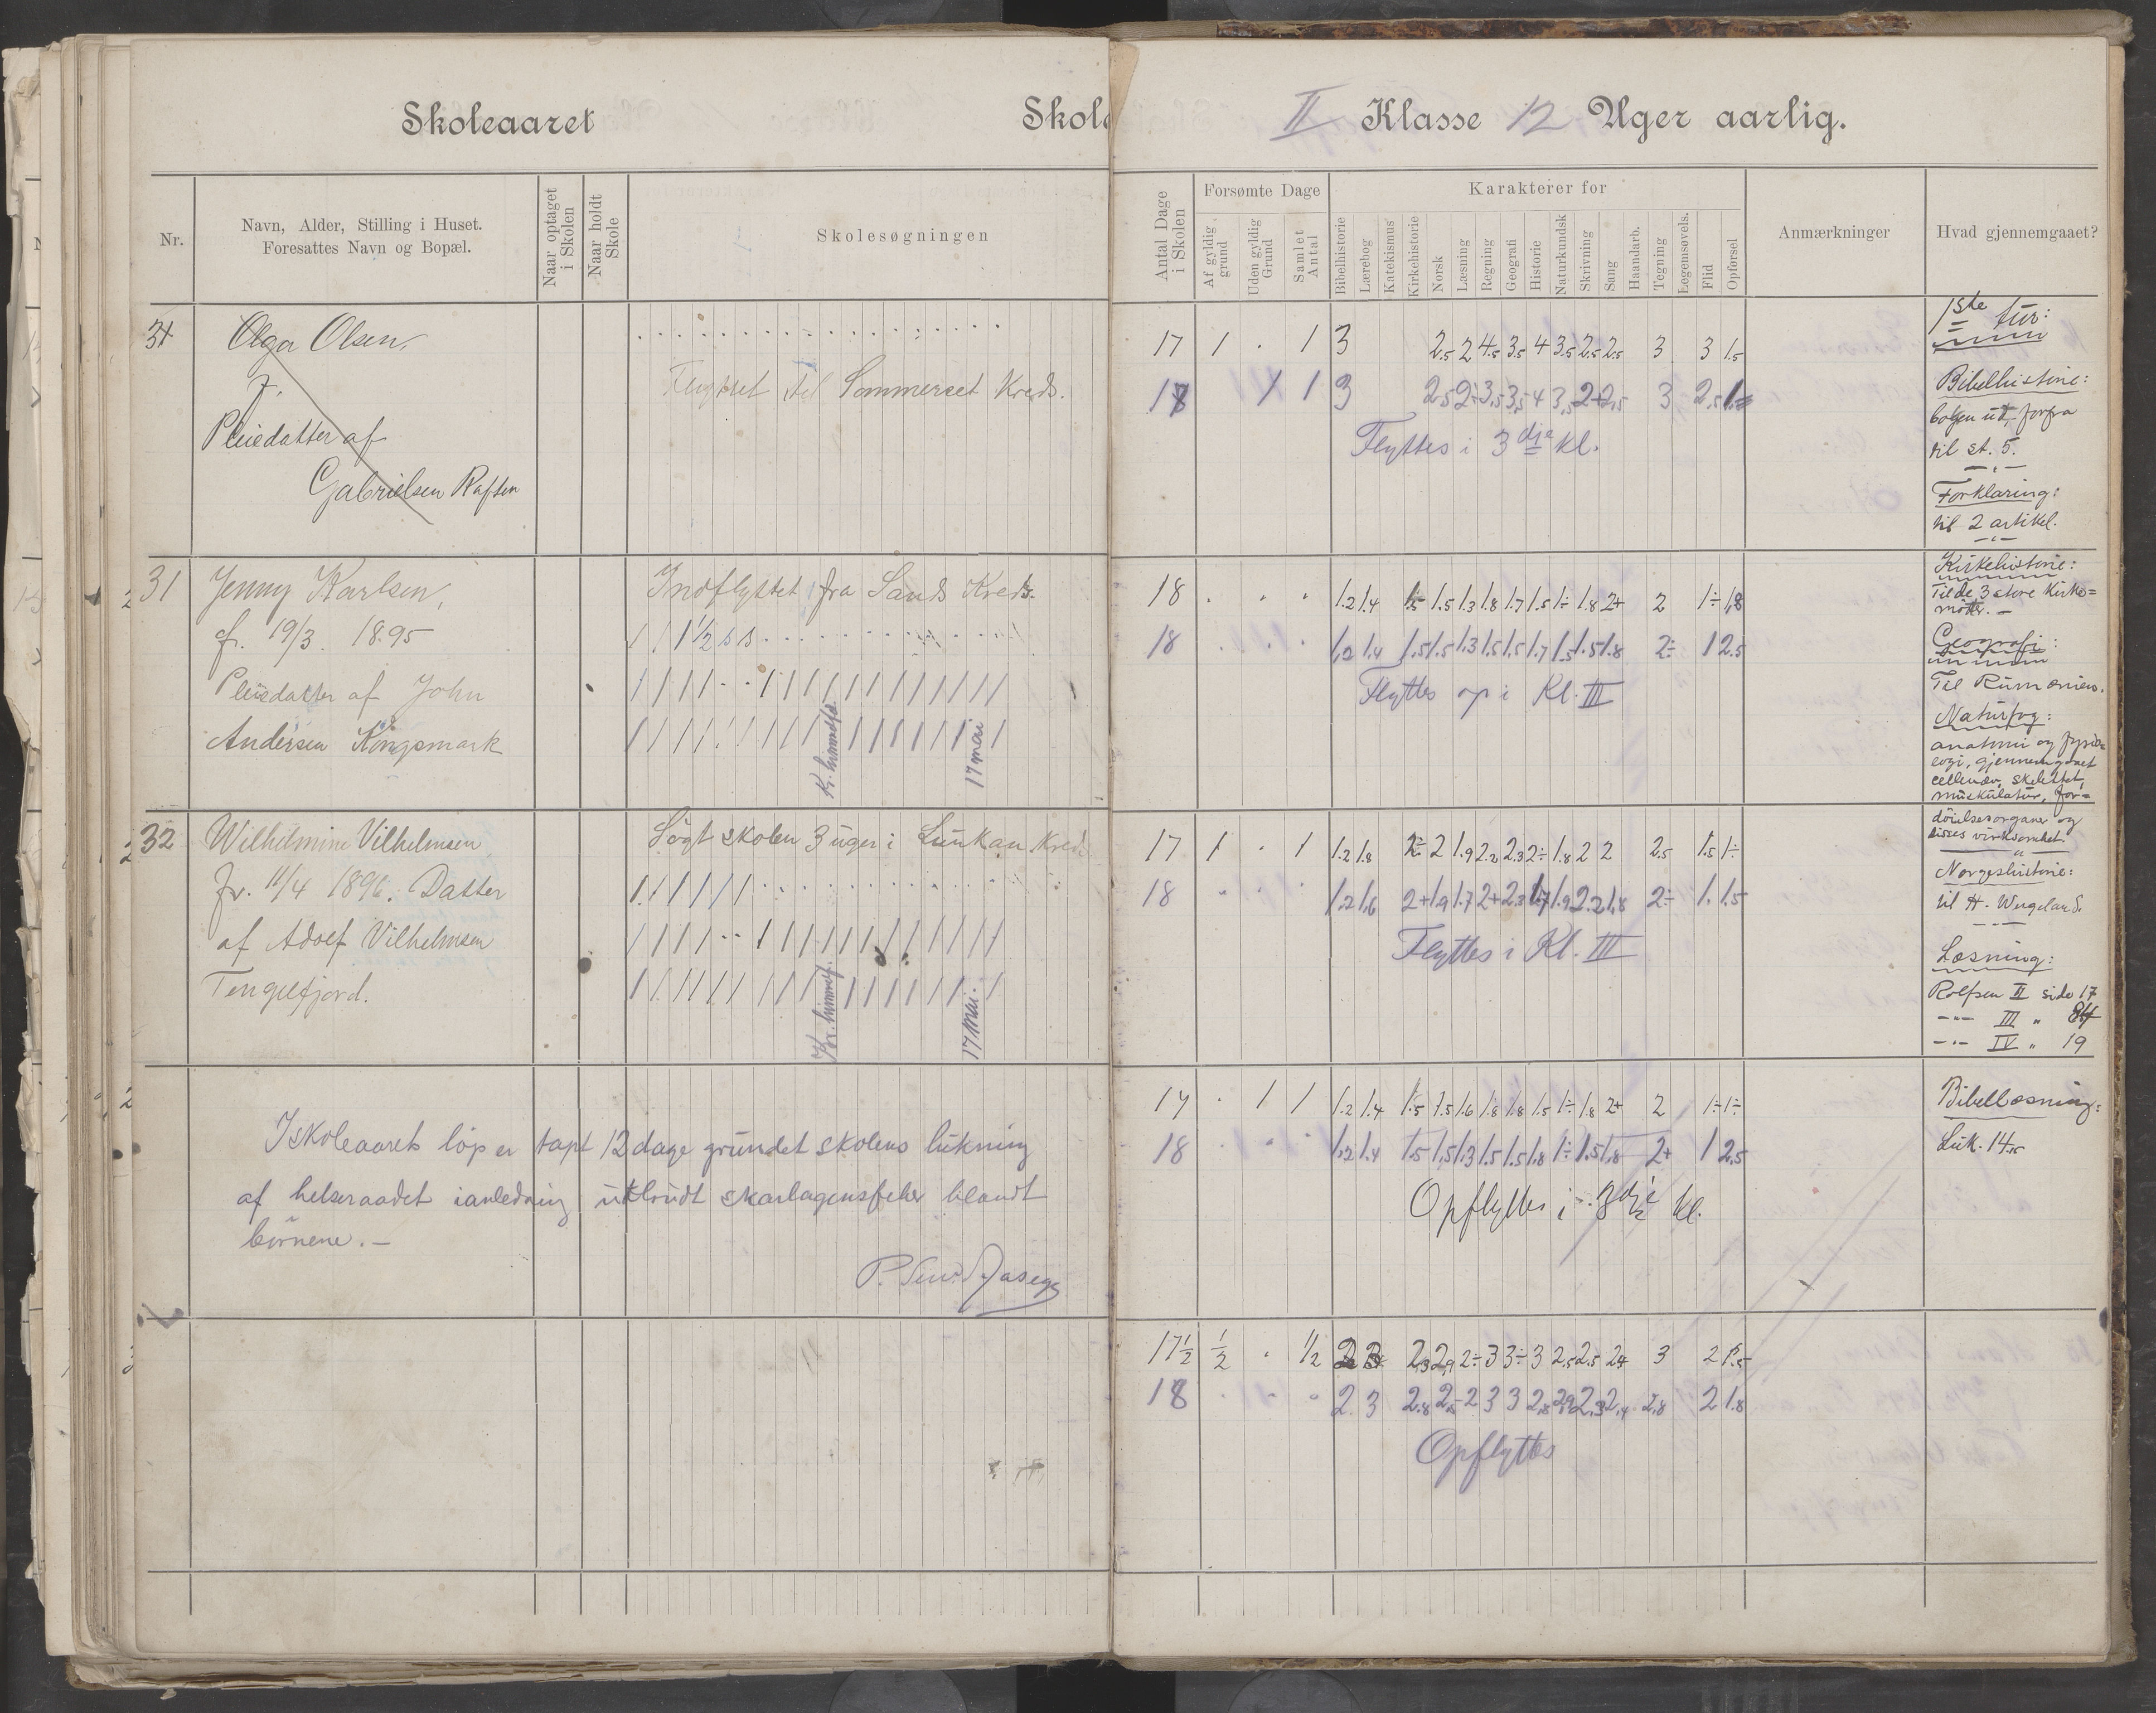 Skoleaaret
Skole
Nr.
Navn, Alder, Stilling i Huset.
Foresattes Navn og Bopæl.
Naar optaget
i Skolen
Naar holdt
Skole
Skolesøgningen
31
Olga Olsen,
f.
Pleiedatter af
Gabrielsen Raften
Flyttet til Sommerset Kreds.
31
Jenny Karlsen,
f. 19/3 1895
Pleiedatter af John
Andersen Kongsmark
Indflyttet fra Sands Kreds.
1 1 1 1/2 s s
Kr. himmelf.
17 mai
32
Wilhelmine Vilhelmsen
f. 11/4 1896. Datter
af Adolf Vilhelmsen
Tengelfjord.
Søgt skolen 3 uger i Kreds
Kr. himmelf.
17 mai.
I skoleaarets løp er tapt 12 dage grundet skolens lukning
af helseraadet i anledning utbrudt skarlagensfeber blandt
børnene. -
II Klasse 12 Uger aarlig.
Antal Dage
i Skolen
Forsømte Dage
Af gyldig
grund
Uden gyldig
Grund
Samlet
Antal
Karakterer for
Bibelhistorie
Lærebog
Katekismus
Kirkehistorie
Norsk
Læsning
Regning
Geografi
Historie
Naturkundsk
Skrivning
Sang
Haandarb.
Tegning
Legemsøvels.
Flid
Opførsel
Anmærkninger
Hvad gjennemgaaet?
17 1 . 1 3 2.5 2 4.5 3.5 4 3.5 2.5 2.5 3 3 1.5
18 1 1 3 2.5 2÷ 3.5 3.5 4 3.5 2+ 2.5 3 2.5
Flyttes i 3dje kl.
18 . . . 1.2 1.4 1.5 1.5 1.3 1.8 1.7 1.5 1÷ 1.8 2+ 2 1÷ 1.8
18 . . . 1.2 1.4 1.5 1.5 1.3 1.5 1.5 1.7 1.5 1.5 1.8 2÷ 1 2.5
Flyttes op i Kl. III
17 1 . 1 1.2 1.8 2÷ 2 1.9 2.2 2.3 2÷ 1.8 2 2 2.5 1.5 1÷
18 . . . 1.2 1.6 2+ 1.9 1.7 2+ 2.3 1.7 1.9 2.2 1.8 2÷ 1. 1.5
Flyttes i Kl. III
17 . 1 1 1.2 1.4 1.5 1.5 1.6 1.8 1.8 1.5 1÷ 1.8 2+ 2 1÷ 1÷
18 . . . 1.2 1.4 1.5 1.5 1.3 1.5 1.5 1.8 1÷ 1.5 1.8 2+ 1 2.5
Opflyttes i 3dje kl.
17 1/2 1/2 . 1/2 2.3 2.9 2÷ 3 3÷ 3 2.5 2.5 2.4 3 2
18 . . . 2 3 2.8 2.5 2 3 3 2.8 2.9 2.3 2.4 2.8 2 1.8
Opflyttes
1ste tur:
Bibelhistorie:
boken ut, forfra
til st. 5.
Forklaring:
til 2 artikel.
Kirkehistorie:
Til de 3 store kirke=
møter. -
Geografi:
Til Rumænien.
Naturfog:
anatomi og fysio=
logi, gjennemgaaet
cellevæv, skelettet,
muskulatur, for=
døielsesorganer og
disses virksomhet.
Norgeshistorie:
til H. Wergeland.
Læsning:
Rolfsen II side 17
-"- III " 84
-"- IV " 19
Bibellæsning:
Luk. 14.